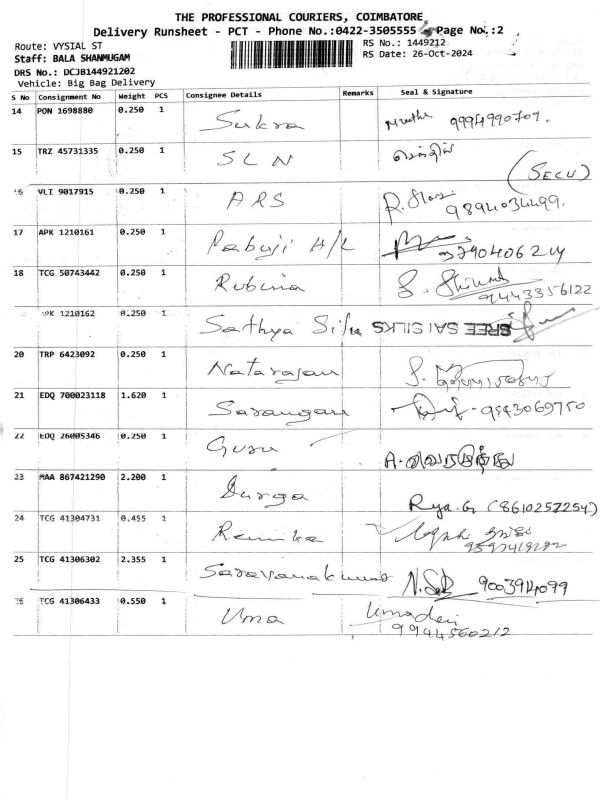 THE PROFESSIONAL COURIERS, COIMBATORE
Delivery Runsheet - PCT - Phone No.:0422-3505555 Page No.:2
Route: VYSIAL ST
RS No.: 1449212
Staff: BALA SHANMUGAM
RS Date: 26-Oct-2024
DRS No.: DCJB144921202
Vehicle: Big Bag Delivery
S No Consignment No Weight PCS Consignee Details Remarks Seal & Signature
14 PON 1698880 0.250 1 Sukra 9994990707.
15 TRZ 45731335 0.250 1 SLN
(SECU)
16 VLI 9017915 0.250 1 ARS
9894034499.
17 APK 1210161 0.250 1 Pabuji H/L
18 TCG 50743442 0.250 1 Rubina
9443356122
APK 1210162 0.250 1 Sathya Silks SREE SAI SILKS
20 TRP 6423092 0.250 1 Natarajan
21 EDQ 700023118 1.620 1 Sarangan
22 EDQ 26005346 0.250 1 Guru
23 MAA 867421290 2.200 1 Durga
Rya.G (8610257254)
24 TCG 41304731 0.455 1
25 TCG 41306302 2.355 1 Saravanakumar
26 TCG 41306433 0.550 1 Uma Umadevi
9944560212